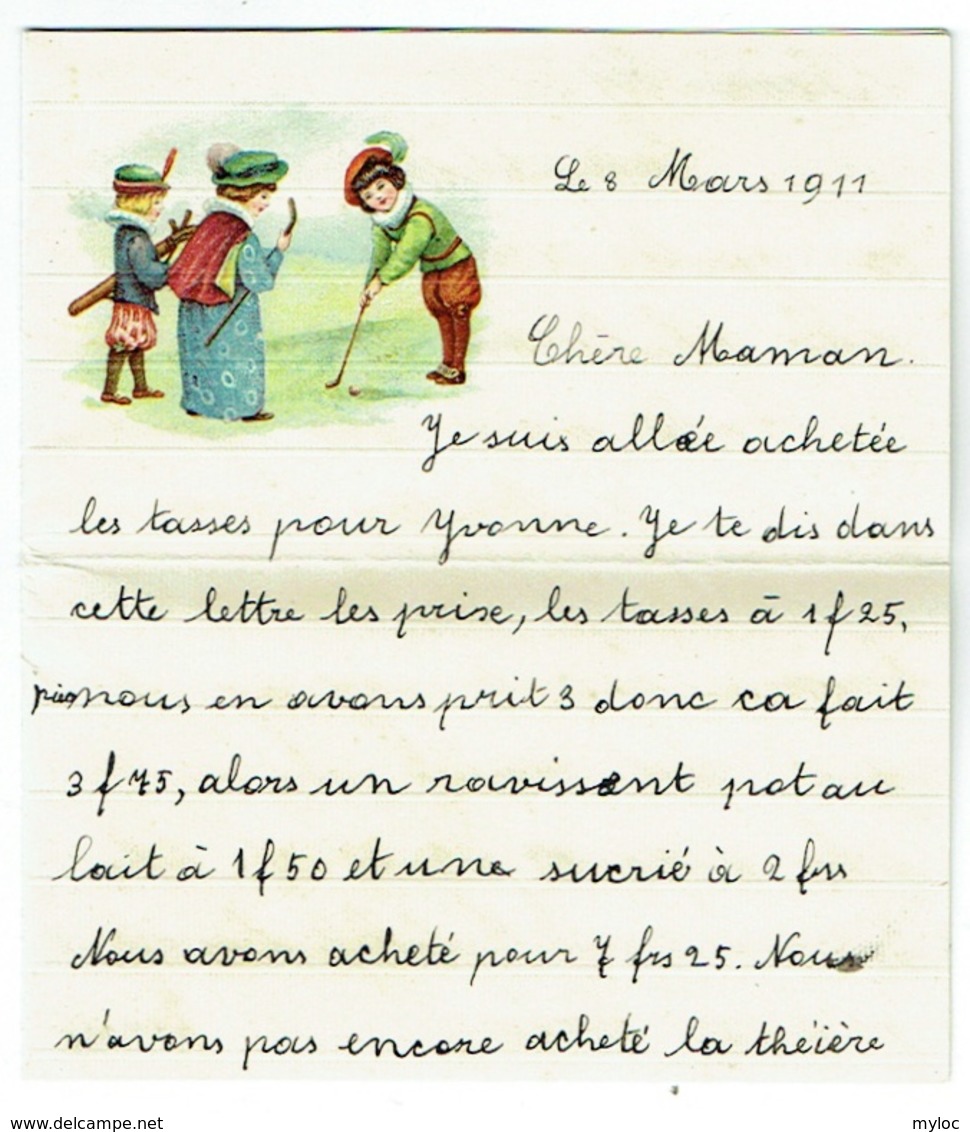 Le 8 Mars 1911
Chère Maman.
Je suis allée achetée
les tasses pour Yvonne. Je te dis dans
cette lettre les prixe, les tasses à 1 f 25,
puis nous en avons prit 3 donc ca fait
3 f 75, alors un ravissent pot au
lait à 1 f 50 et une sucrié à 2 frs
Nous avons acheté pour 7 frs 25. Nous
n'avons pas encore acheté la théière
www.delcampe.net
myloc